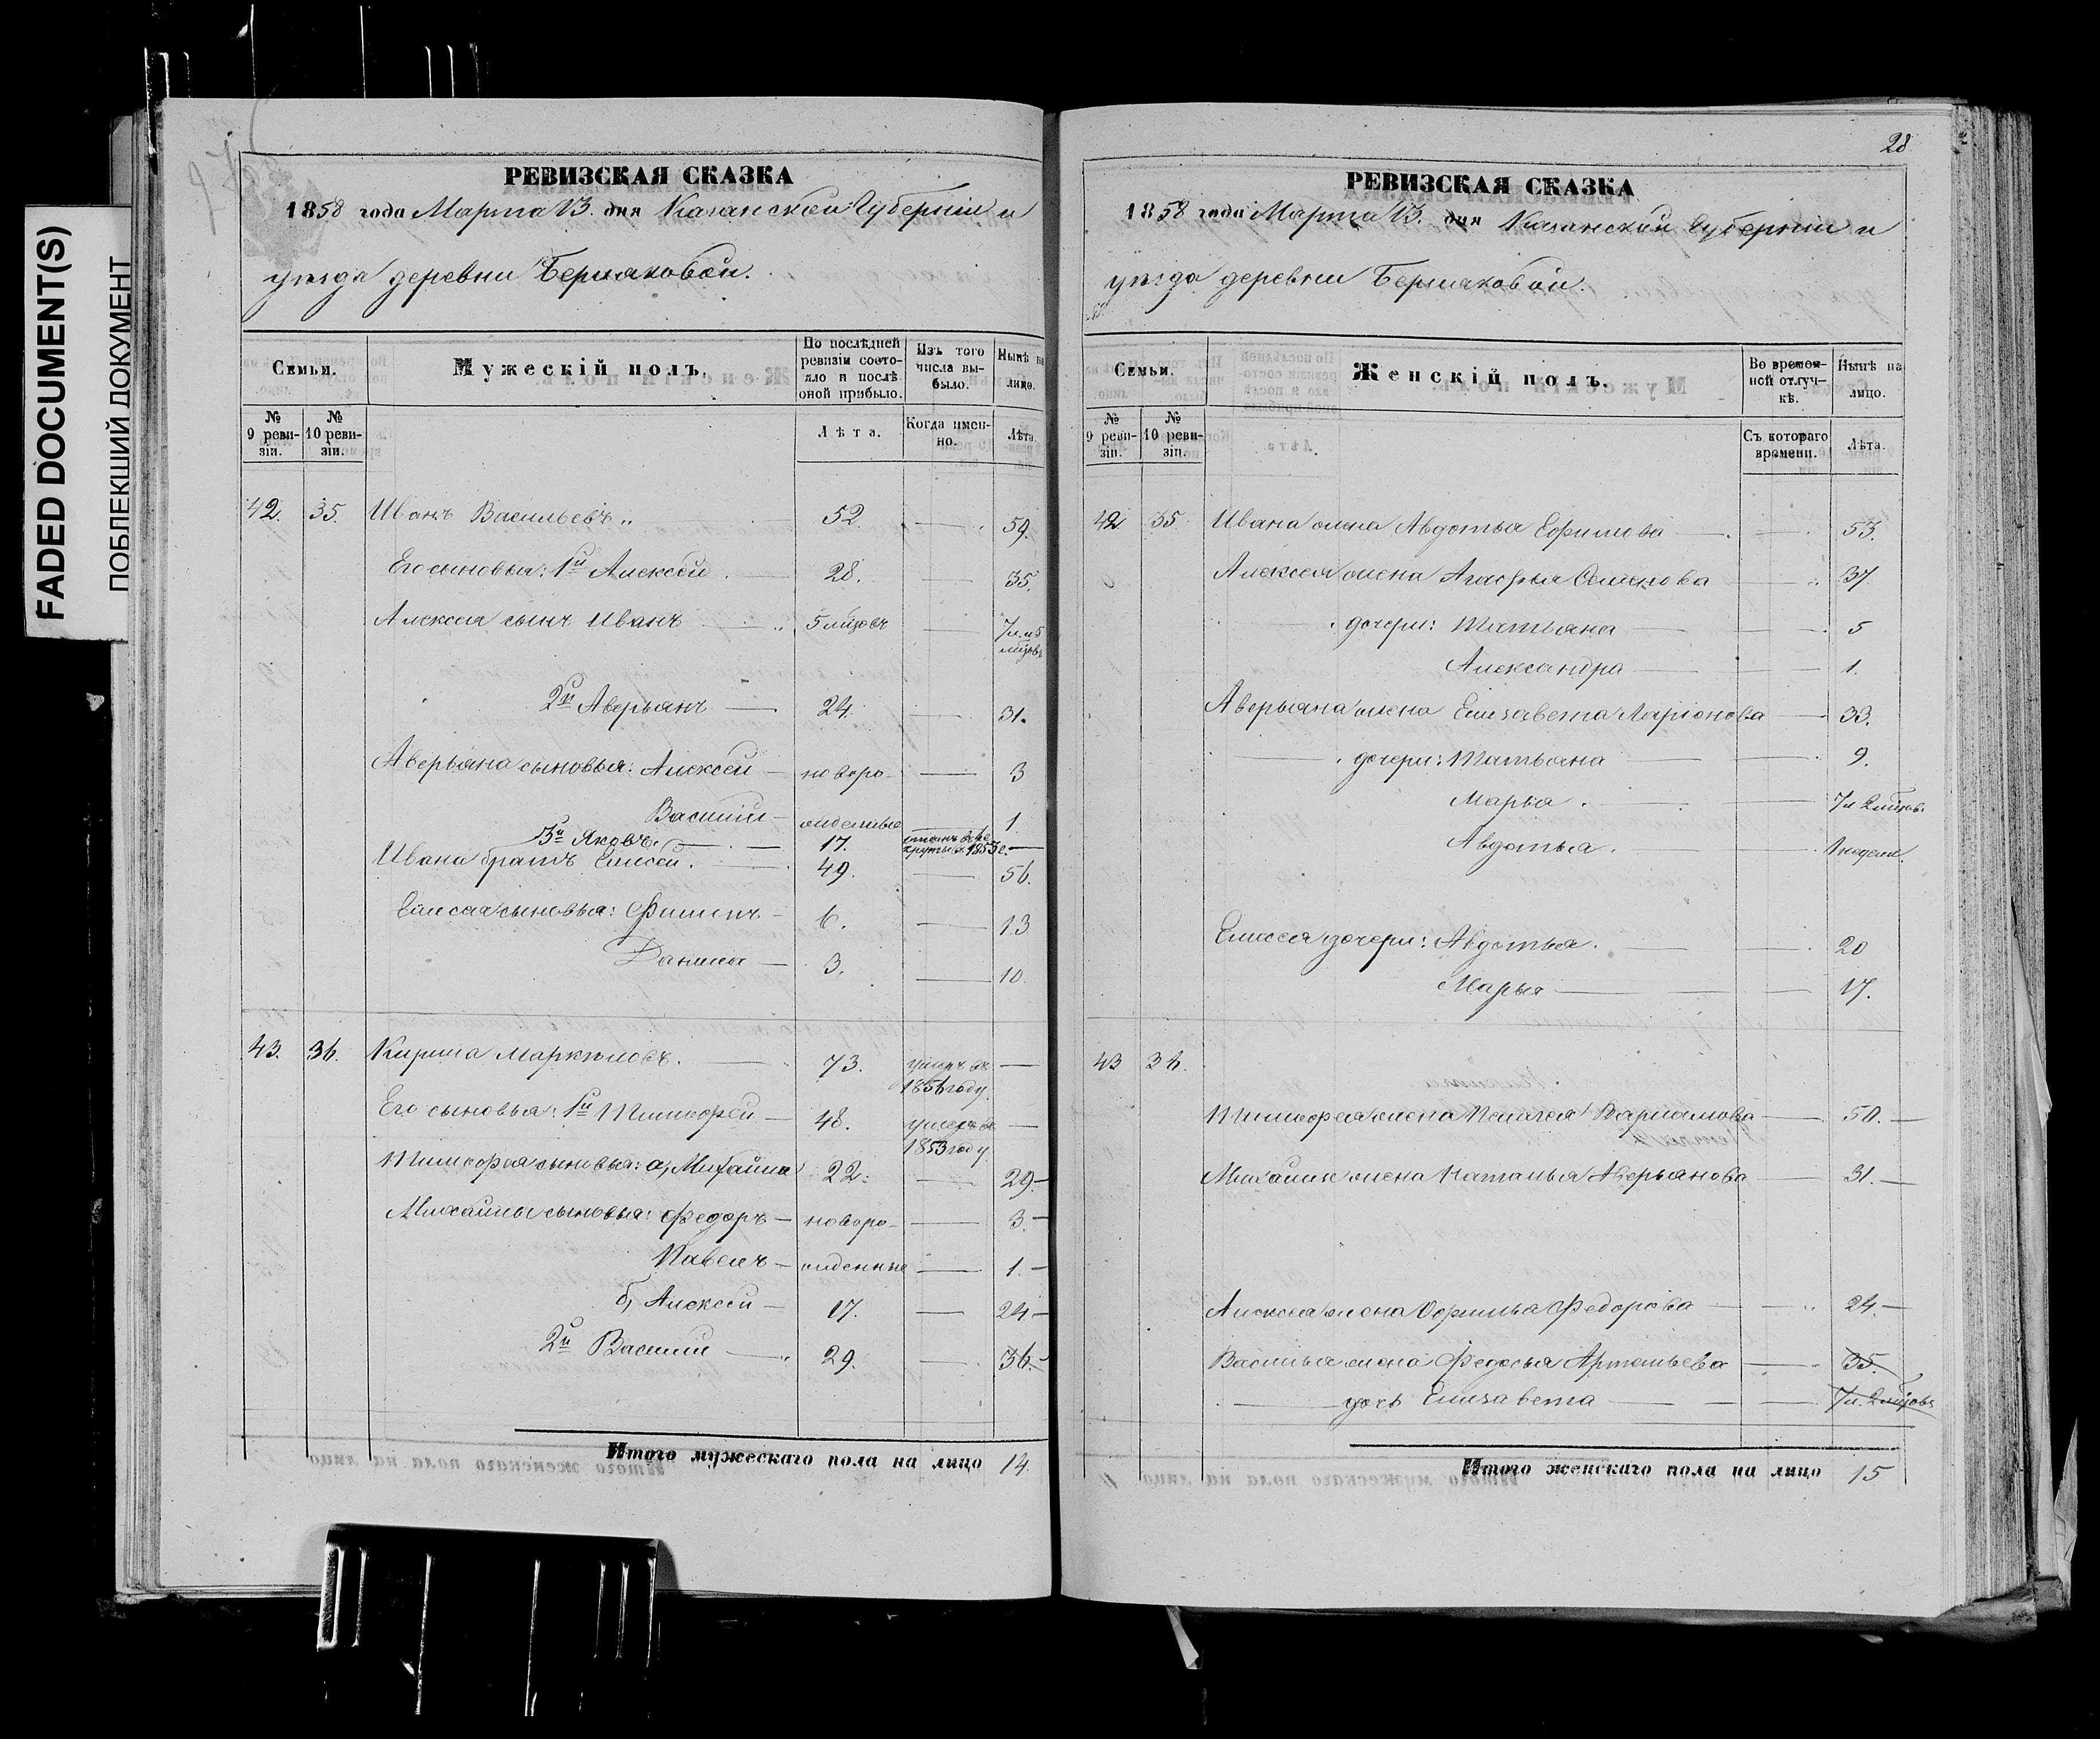 FADED DOCUMENT(S)
ПОБЛЕКШИЙ ДОКУМЕНТ
РЕВИЗСКАЯ СКАЗКА
1858 года Марта 13. дня Казанской Губерніи и
уѣзда деревни
Семьи.
Мужескій полъ.
По послѣдней ревизіи состояло и послѣ оной прибыло.
Изъ того числа выбыло.
Нынѣ на лицо.
№ 9 ревизіи.
№ 10 ревизіи.
Лѣта.
Когда именно.
Лѣта.
42. 35. Иванъ Васильевъ 52. — 59.
Его сыновья: 1й Алексей — 28. — 35.
Алексея сынъ Иванъ — 5 мцовъ — 7 л. и 5 мцовъ
2й Аверьянъ — 24. — 31.
Аверьяна сыновья: Алексей — новоро- — 3
Василий — жденные — 1
3й Яковъ. — 17. 1853 —
Ивана братъ Елисей. 49. — 56.
Елисея сыновья: Филипъ — 6. — 13
Данила — 3. — 10
43. 36. Кирила Маркѣловъ. 73. умеръ въ 1856 году —
Его сыновья: 1й Тимофей — 48. умеръ въ 1853 году —
Тимофея сыновья: а, Михайла 22. — 29. —
Михайлы сыновья: Федоръ — новоро- — 3. —
Павелъ — жденные — 1. —
б, Алексей — 17. — 24. —
2й Василий — 29. — 36. —
Итого мужескаго пола на лицо 14.
28
РЕВИЗСКАЯ СКАЗКА
1858 года Марта 13. дня Казанской Губерніи и
уѣзда деревни
Семьи.
Женскій полъ.
Во временной отлучкѣ.
Нынѣ на лицо.
№ 9 ревизіи.
№ 10 ревизіи.
Съ котораго времени.
Лѣта.
42 35 Ивана жена Авдотья Ефимова — 53.
Алексея жена Агафья Семенова — 37
дочери: Татьяна — 5
Александра — 1.
Аверьяна жена Елизавета Ларіонова — 33.
дочери: Татьяна — 9.
Марья. — 7 л 2 мцов.
Авдотья. — 1 недели.
Елисея дочери: Авдотья. — 20
Марья — 17.
43 36.
Тимофея жена Пелагея Варламова — 50. —
Михайлы жена Наталья Аверьянова — 31. —
Алексея жена Офимья Федорова — 24. —
Василья жена Федосья Артемьева — 35.
— дочь Елизавета — 7 л. 2 мцовъ
Итого женскаго пола на лицо 15